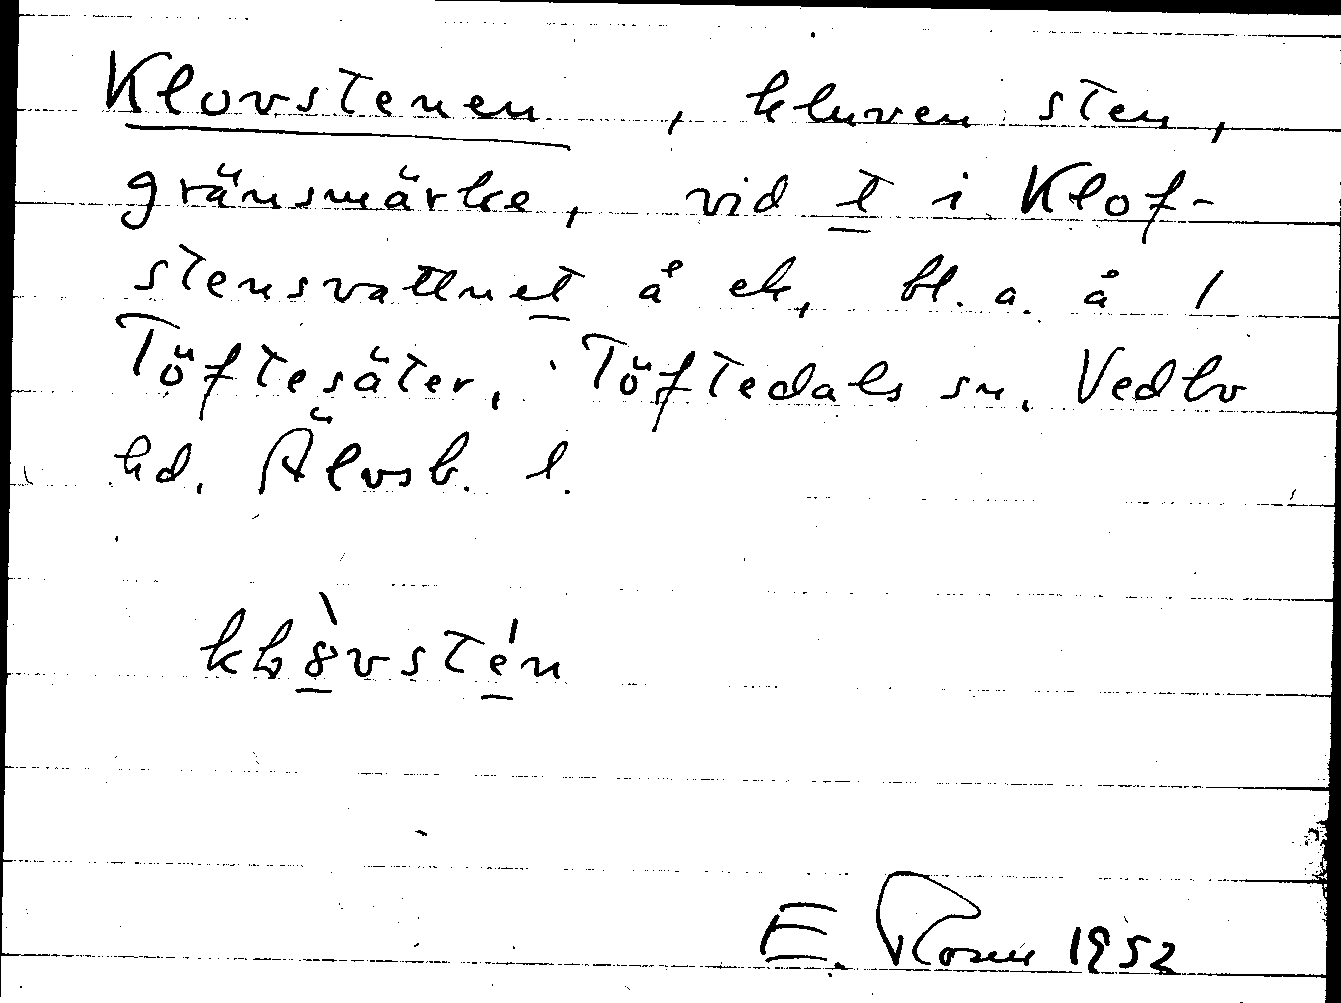 Klovstenen, kluven sten,
gränsmärke, vid t i Klof-
stensvattnet å ek, bl. a. å 1
Töftesäter, Töftedals sn. Vedbo
hd. Älvsb. l.
E. Rosen 1952